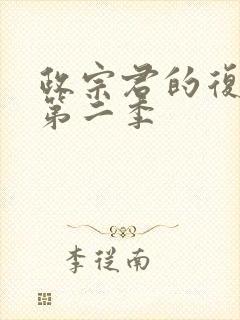 政宗君的復
第二季
李從南